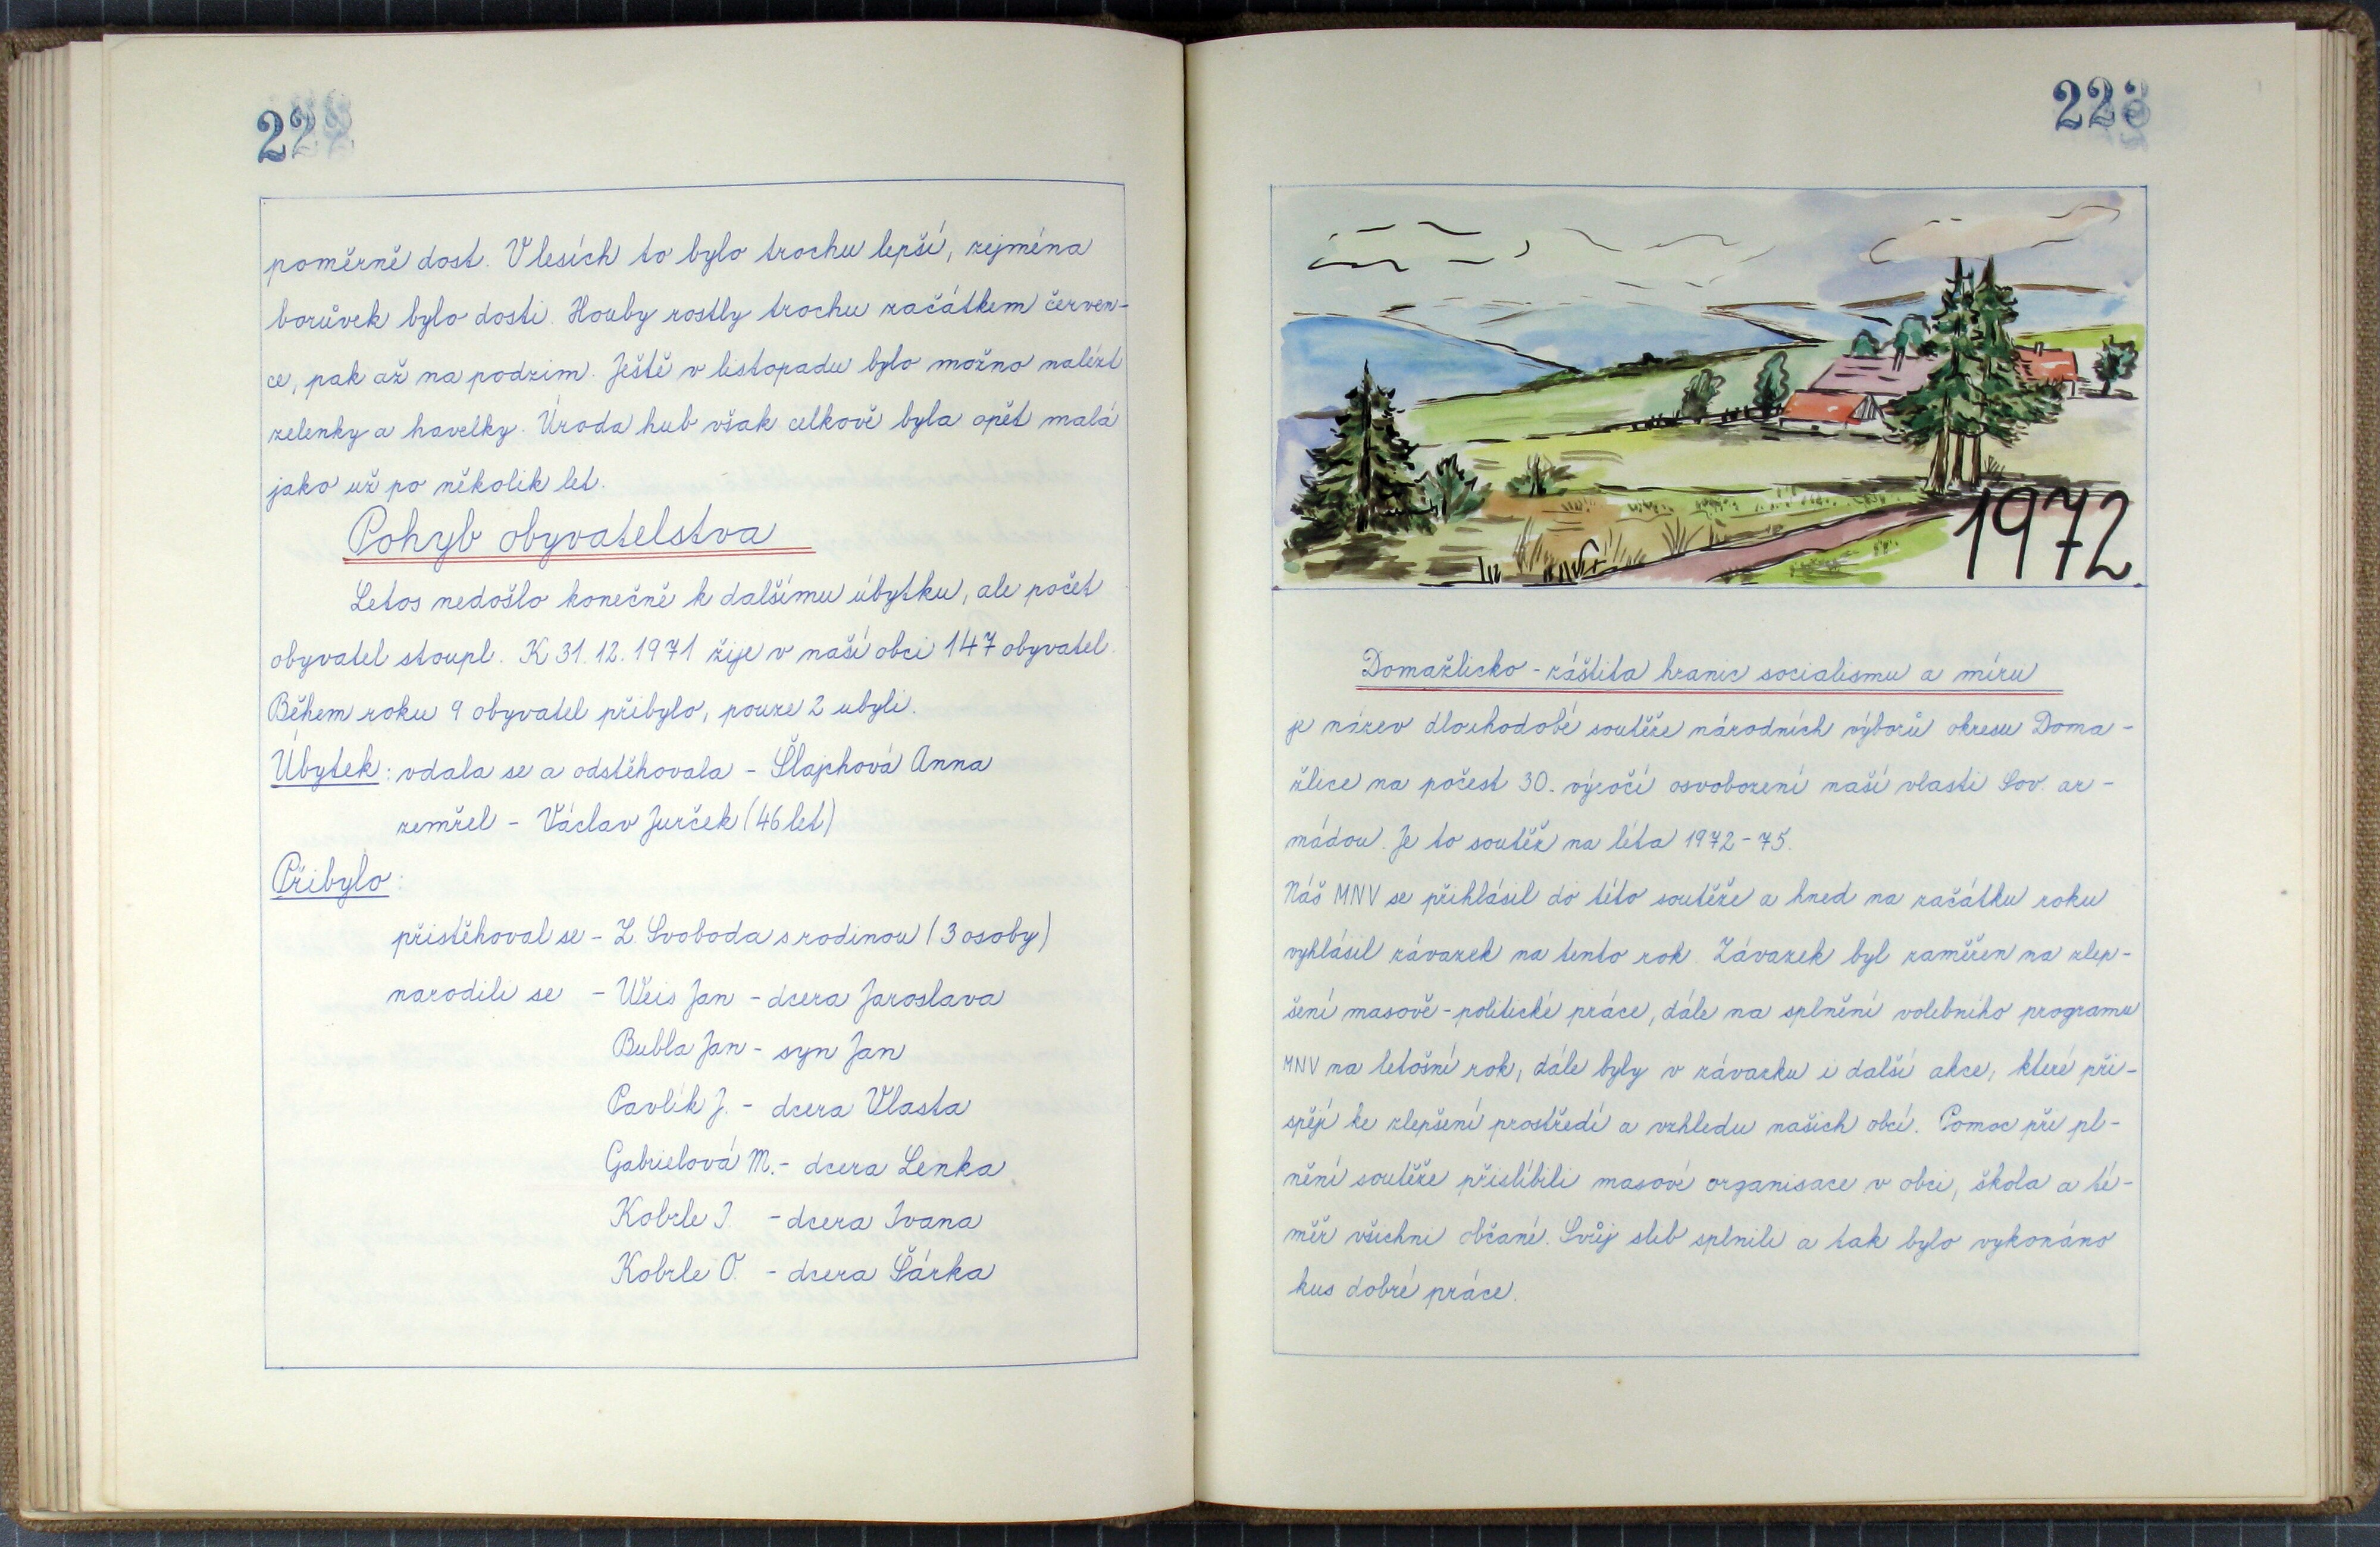 222
poměrně dost. V lesích to bylo trochu lepší, zejména
borůvek bylo dosti. Houby rostly trochu začátkem červen-
ce, pak až na podzim. Ještě v listopadu bylo možno nalézt
zelenky a havelky. Úroda hub však celkově byla opět malá
jako už po několik let.
Pohyb obyvatelstva
Letos nedošlo konečně k dalšímu úbytku, ale počet
obyvatel stoupl. K 31. 12. 1971 žije v naší obci 147 obyvatel.
Během roku 9 obyvatel přibylo, pouze 2 ubyli.
Úbytek: vdala se a odstěhovala - Šlajchová Anna
zemřel - Václav Jurček (46 let)
Přibylo:
přistěhoval se - L. Svoboda s rodinou (3 osoby)
narodili se - Weis Jan - dcera Jaroslava
Bubla Jan - syn Jan
Pavlík J. - dcera Vlasta
Gabrielová M. - dcera Lenka
Kobrle J. - dcera Ivana
Kobrle O. - dcera Šárka
223
1972
Domažlicko - záštita hranic socialismu a míru
je název dlouhodobé soutěže národních výborů okresu Doma-
žlice na počest 30. výročí osvobození naší vlasti Sov. ar-
mádou. Je to soutěž na léta 1972 - 75.
Náš MNV se přihlásil do této soutěže a hned na začátku roku
vyhlásil závazek na tento rok. Závazek byl zaměřen na zlep-
šení masově-politické práce, dále na splnění volebního programu
MNV na letošní rok, dále byly v závazku i další akce, které při-
spějí ke zlepšení prostředí a vzhledu našich obcí. Pomoc při pl-
nění soutěže přislíbili masové organisace v obci, škola a té-
měř všichni občané. Svůj slib splnili a tak bylo vykonáno
kus dobré práce.